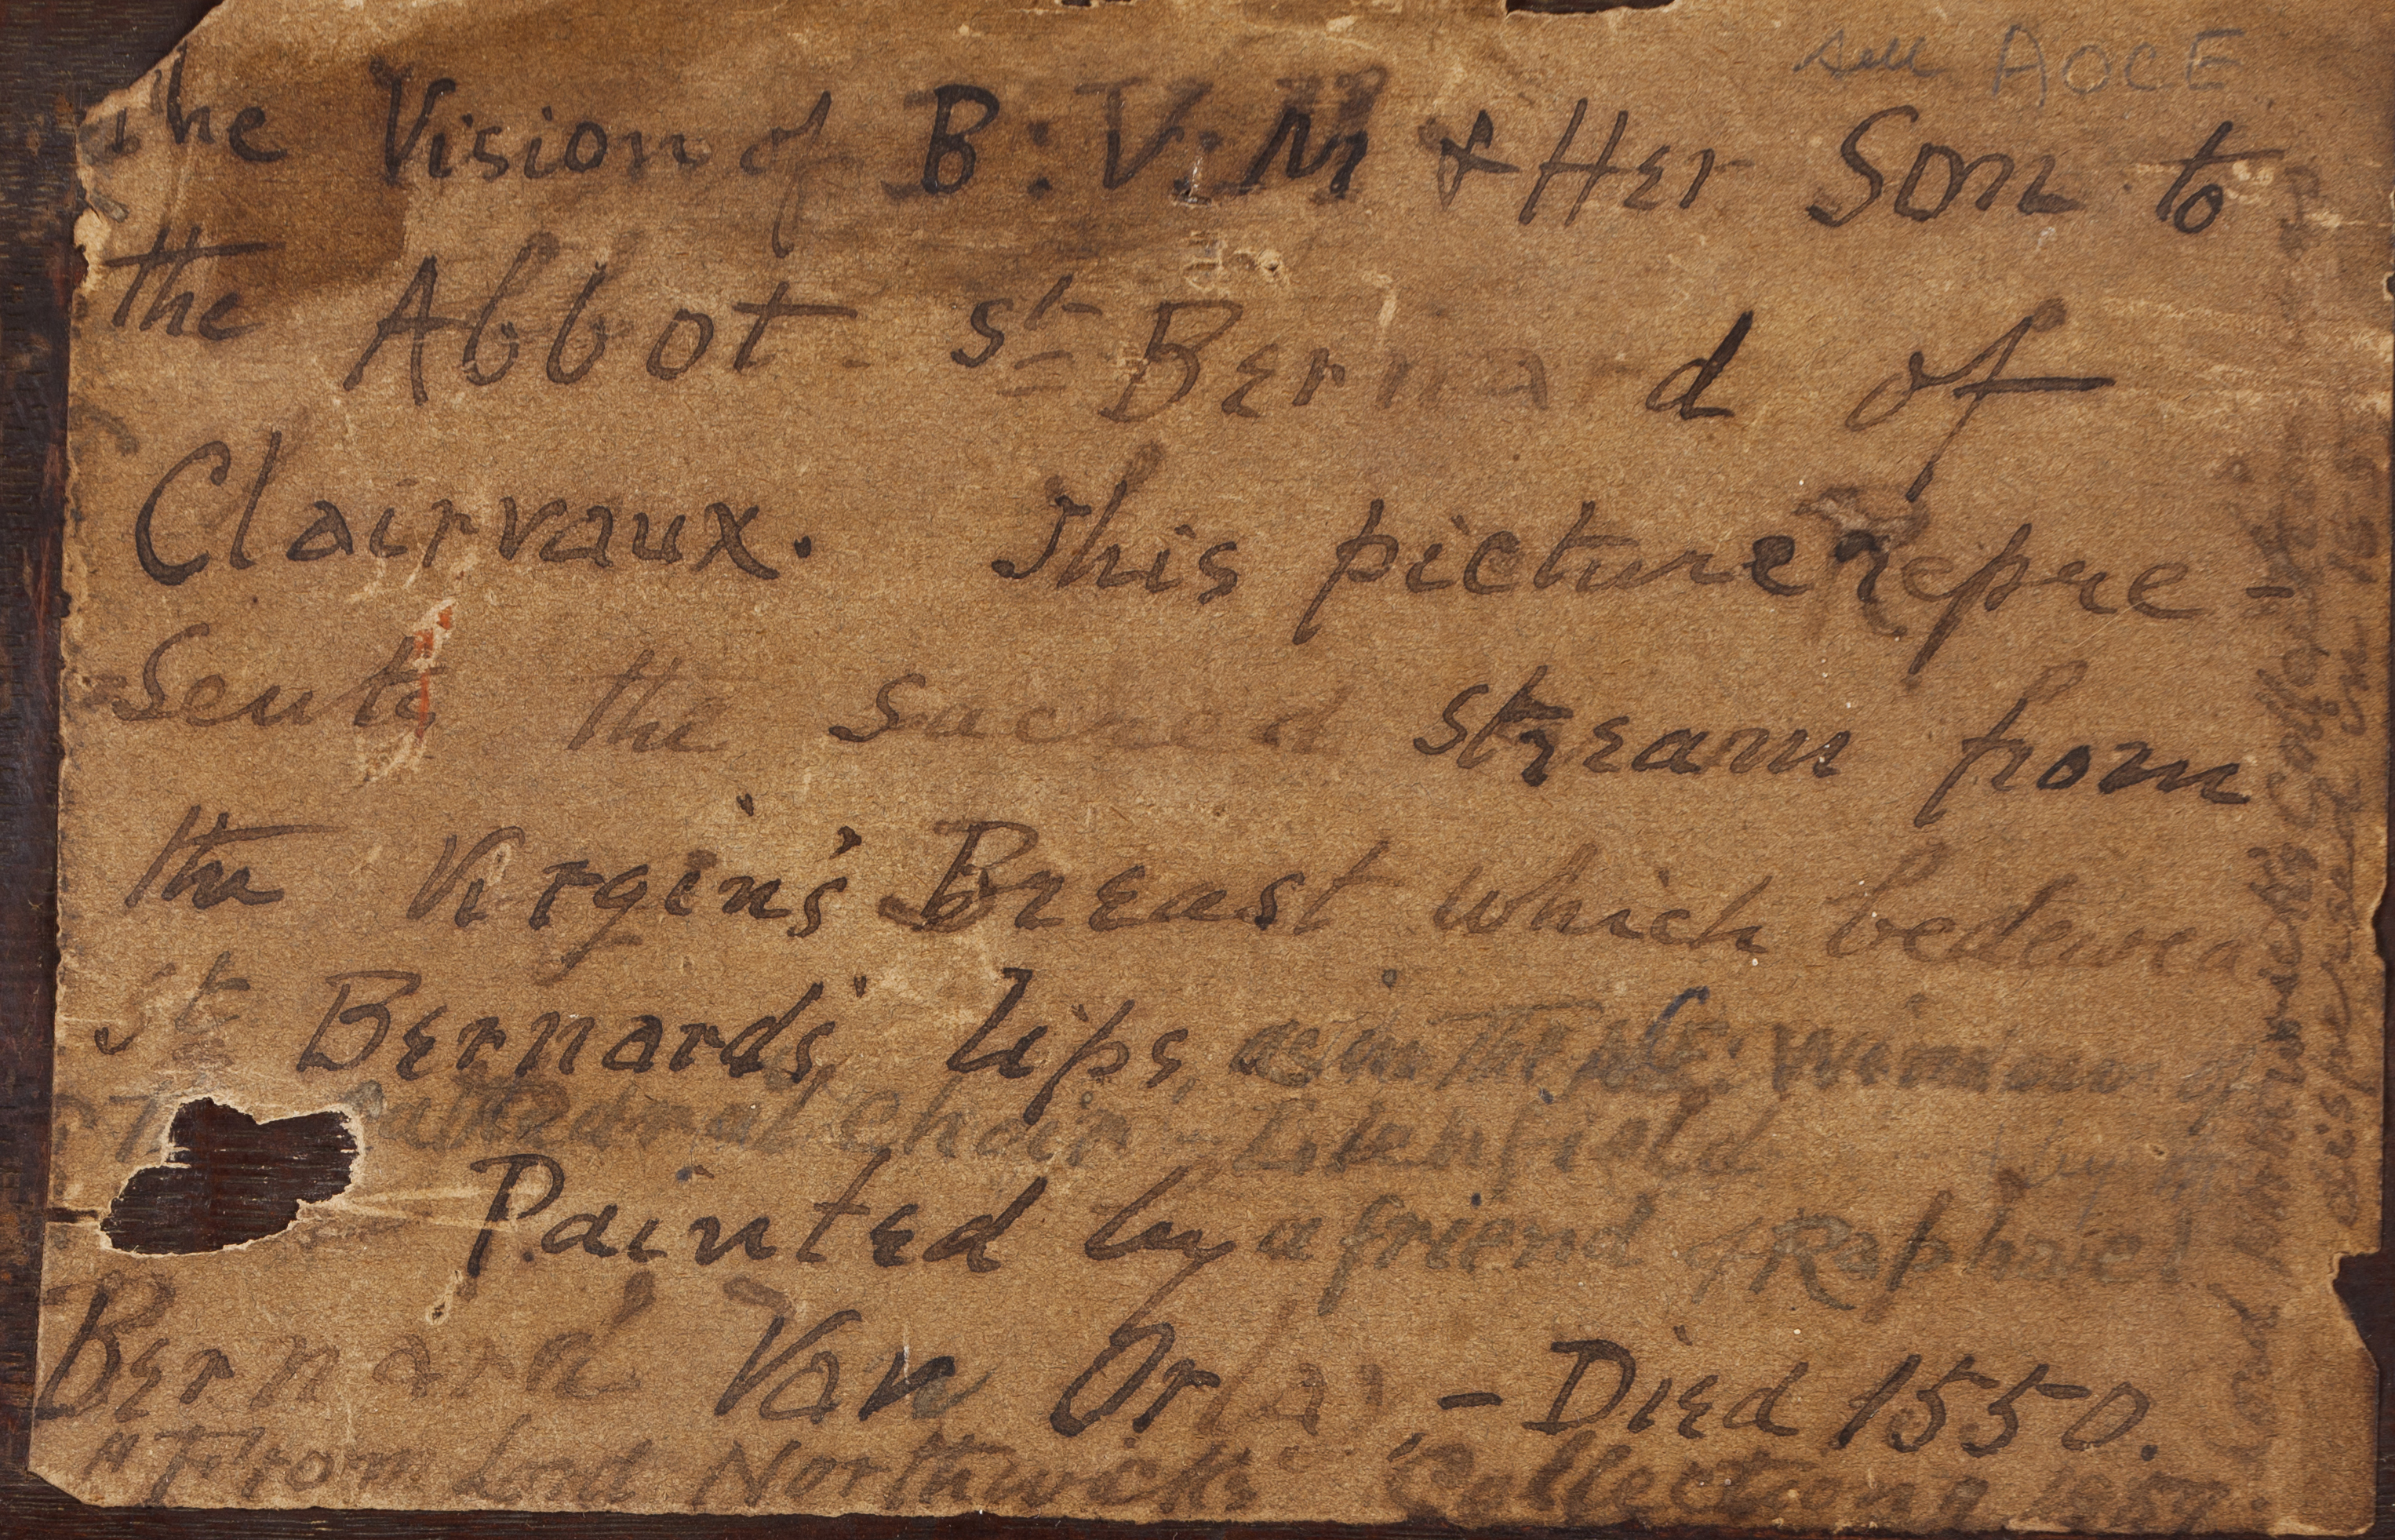 sell AOCE
The Vision of B: V: M & Her Son to
the Abbot St Bernard of
Clairvaux. This picture repre-
sents the sacred stream from
the Virgin's Breast which bedewed
St Bernard's lips, as in the of
Cathedral Choir - Lichfield
Painted by a friend of Raphael
Bernard Van Orlay - Died 1550.
"From Lord Northwick's Collection, 1859.
Lord Northwick's Collection
dispersed in